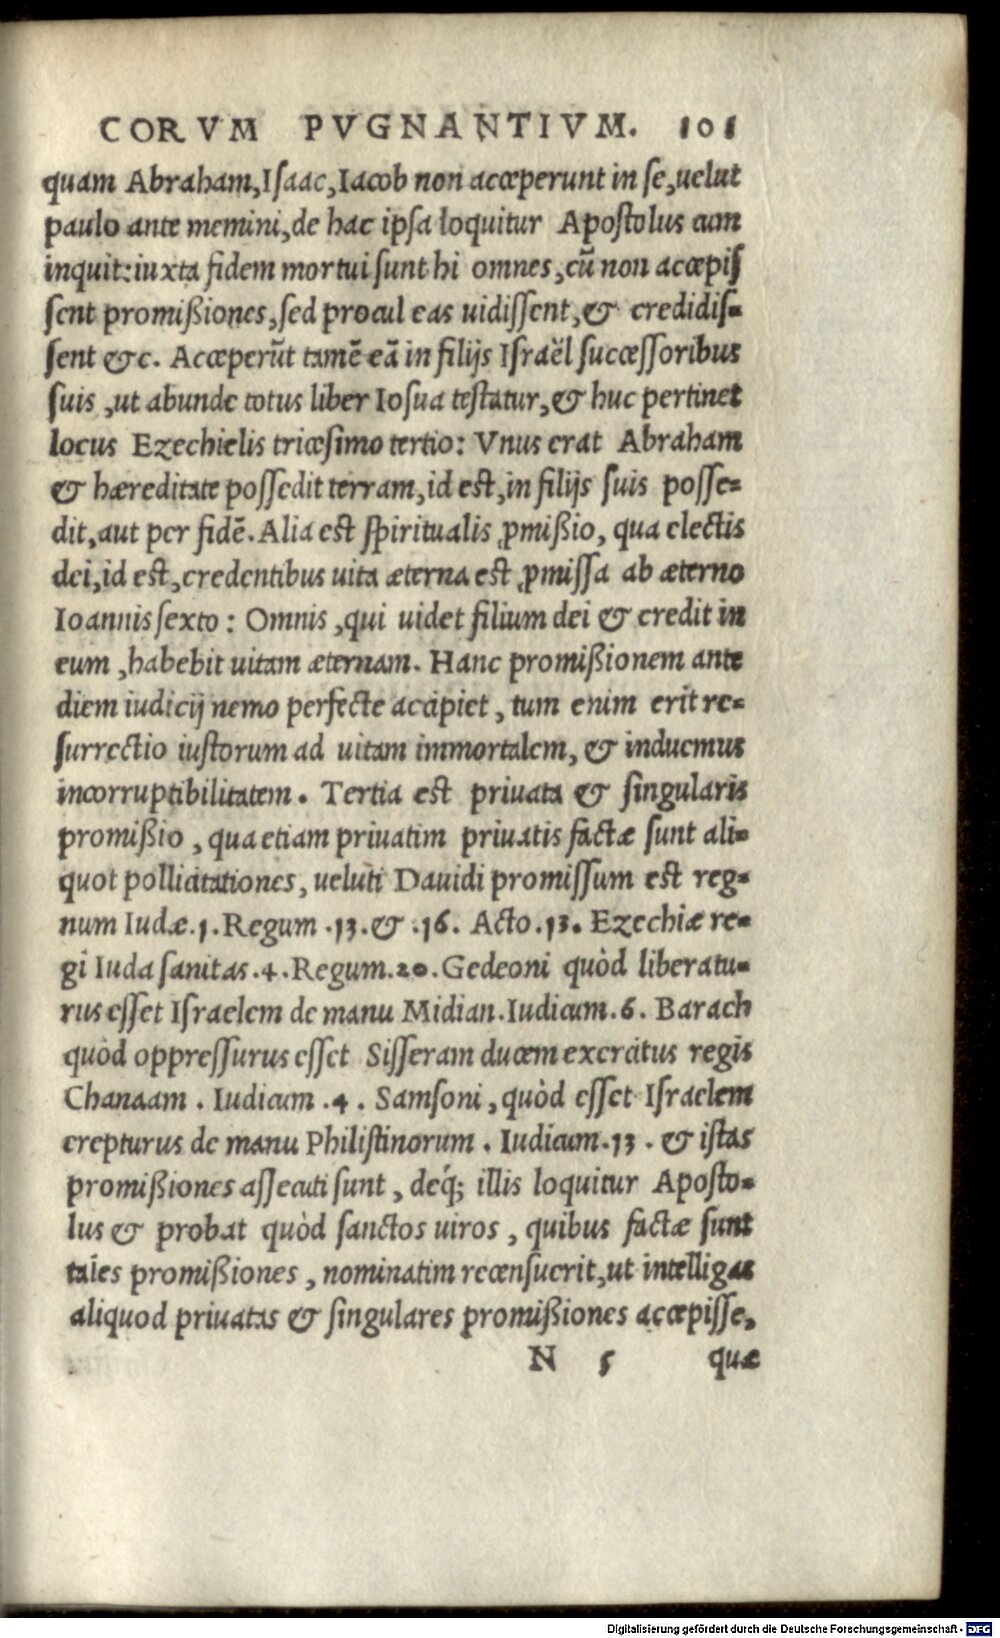 CORVM PVGNANTIVM. 101
quam Abraham, Isaac, Iacob non acceperunt in se, uelut
paulo ante memini, de hac ipsa loquitur Apostolus cum
inquit: iuxta fidem mortui sunt hi omnes, cũ non accepiſ
sent promißiones, sed procul eas uidissent, & credidis-
sent &c. Acceperũt tamẽ eã in filijs Israël successoribus
suis, ut abunde totus liber Iosua testatur, & huc pertinet
locus Ezechielis tricesimo tertio: Vnus erat Abraham
& hæreditate possedit terram, id est, in filijs suis posse-
dit, aut per fidẽ. Alia est spiritualis ꝓmißio, qua electis
dei, id est, credentibus uita æterna est ꝓmissa ab æterno
Ioannis sexto: Omnis, qui uidet filium dei & credit in
eum, habebit uitam æternam. Hanc promißionem ante
diem iudicij nemo perfecte accipiet, tum enim erit re-
surrectio iustorum ad uitam immortalem, & induemus
incorruptibilitatem. Tertia est priuata & singularis
promißio, qua etiam priuatim priuatis factæ sunt ali-
quot pollicitationes, ueluti Dauidi promissum est reg-
num Iudæ. 1. Regum .13. & .16. Acto .13. Ezechiæ re-
gi Iuda sanitas .4. Regum. 20. Gedeoni quòd liberatu-
rus esset Israelem de manu Midian. Iudicum .6. Barach
quòd oppressurus esset Sisseram ducem exercitus regis
Chanaam. Iudicum .4. Samsoni, quòd esset Israelem
erepturus de manu Philistinorum. Iudicum .13. & istas
promißiones assecuti sunt, deq́; illis loquitur Aposto-
lus & probat quòd sanctos uiros, quibus factæ sunt
tales promißiones, nominatim recensuerit, ut intelligas
aliquod priuatas & singulares promißiones accepisse,
N 5 quæ
Digitalisierung gefördert durch die Deutsche Forschungsgemeinschaft - DFG